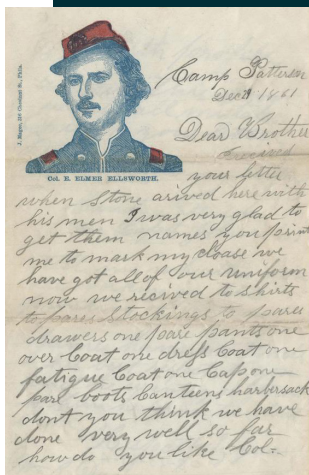 J. Magee, 316 Chestnut St., Phila.
Col. E. ELMER ELLSWORTH.
Camp Patterson
Dec 1861
Dear Brother
I recived
your letter
when Stone arived here with
his men I was very glad to
get them names you print
me to mark my close we
have got all of our uniform
now we recived to shirts
to pares stockings to pares
drawers one pare pants one
over Coat one dress Coat one
fatigue Coat one Cap one
pare boots Canteens harbersack
dont you think we have
done very well so far
how do you like Col.